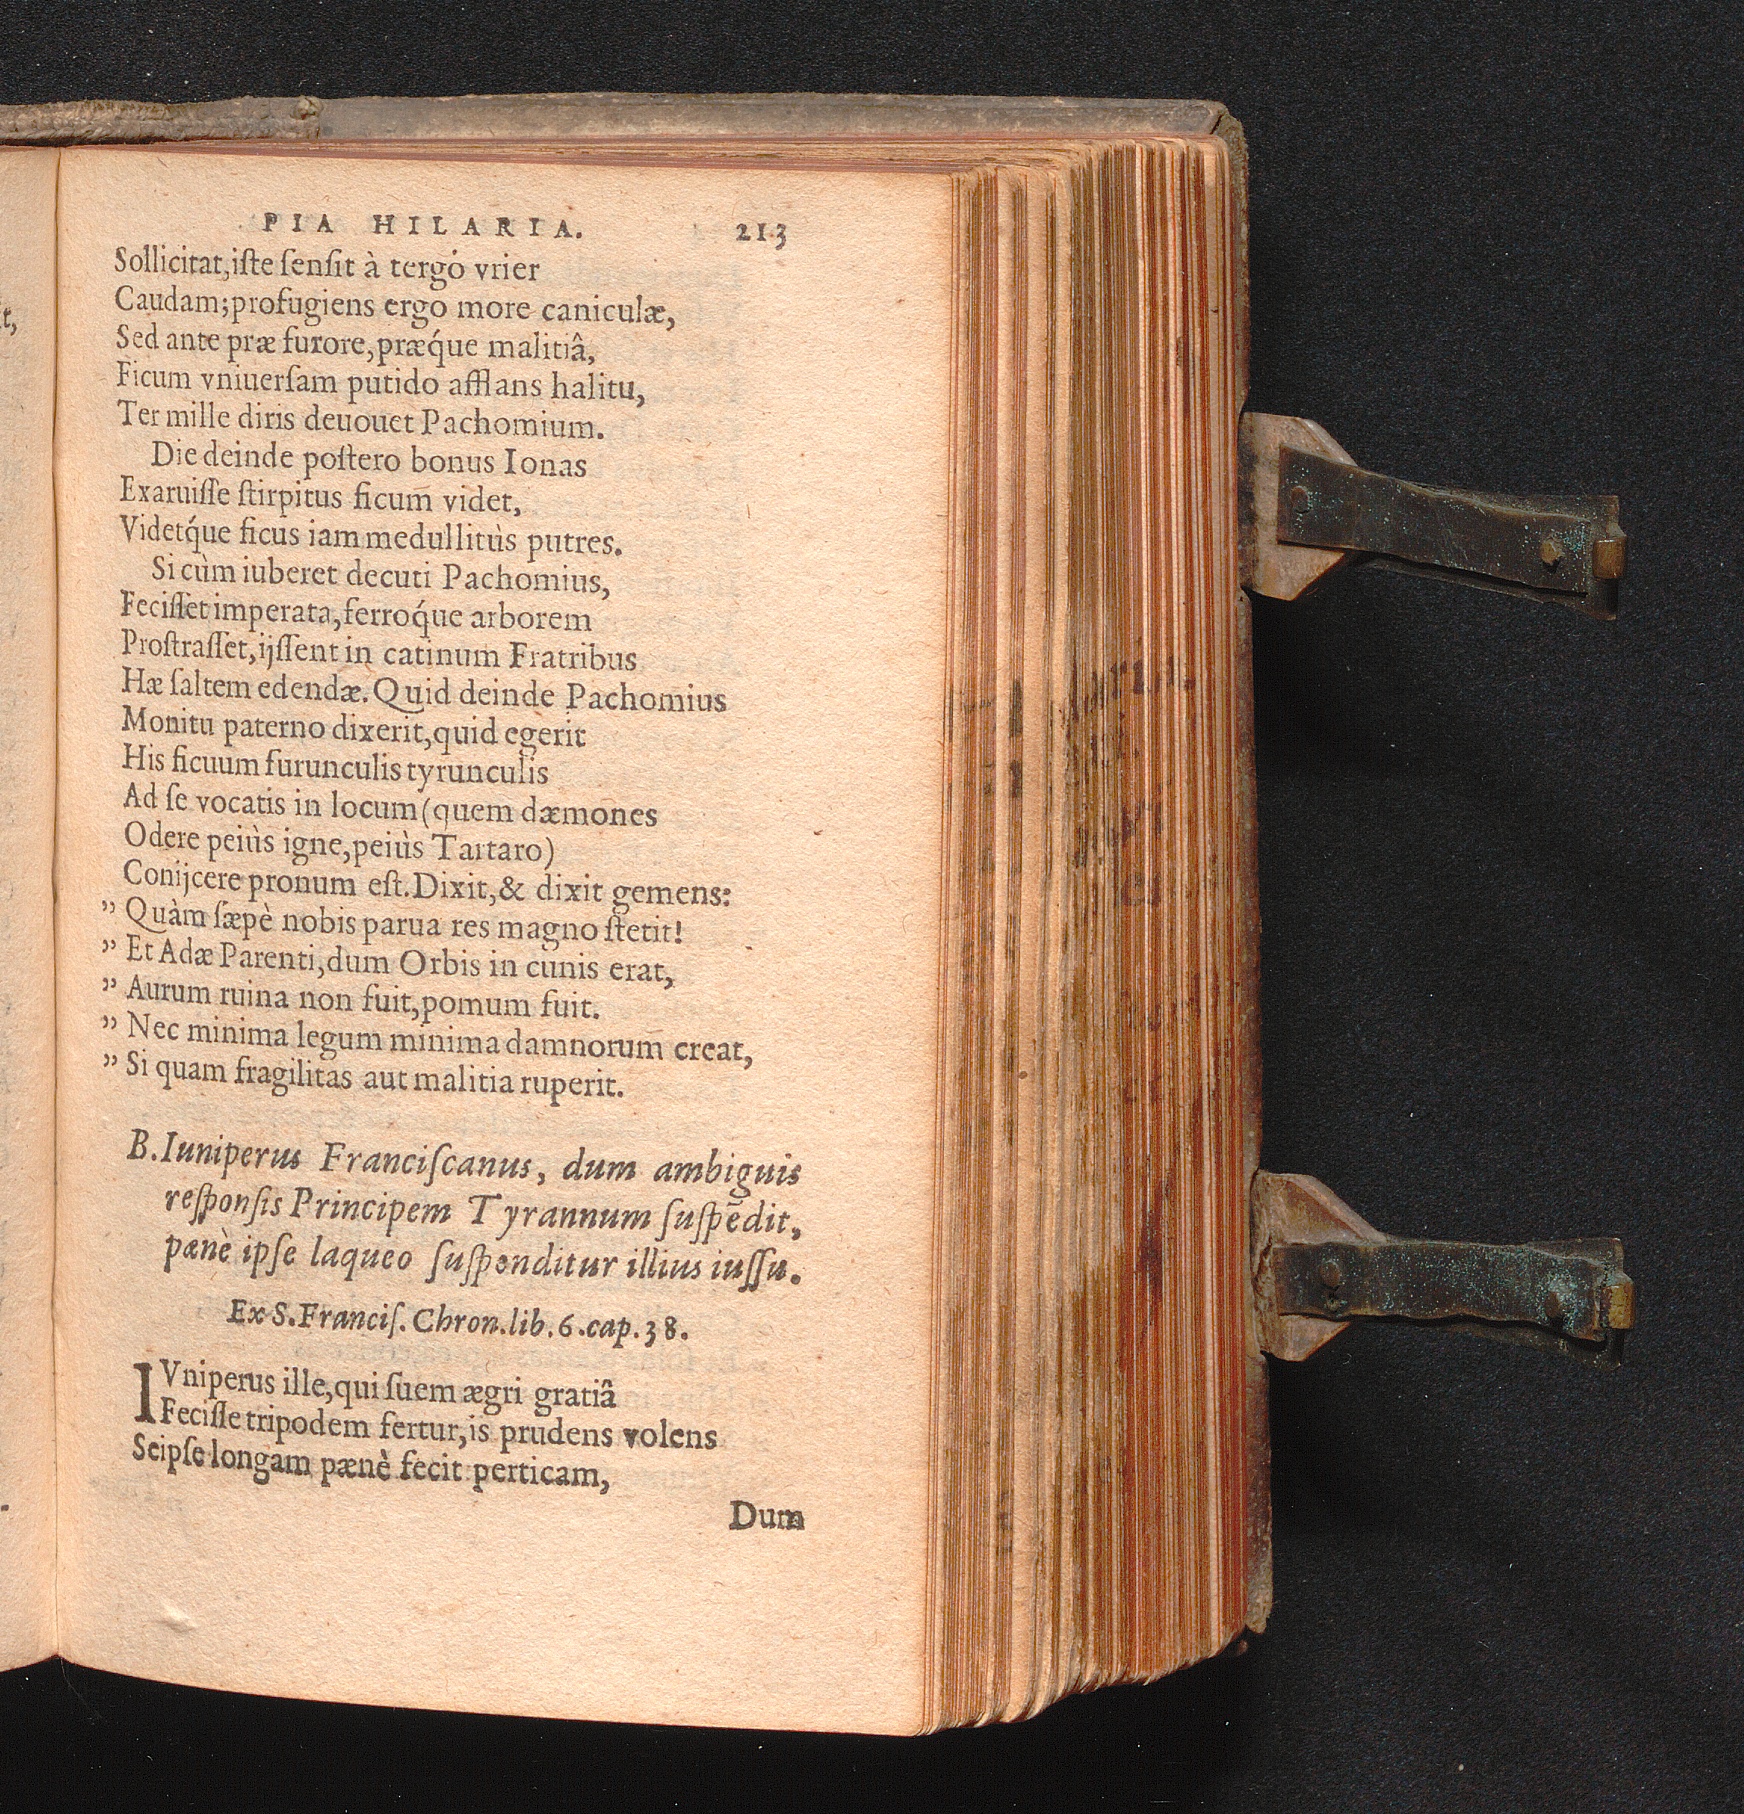 PIA HILARIA. 213
Sollicitat,iſte ſenſit à tergo vrier
Caudam;profugiens ergo more caniculæ,
Sed ante præ furore,præq́ue malitiâ,
Ficum vniuerſam putido afflans halitu,
Ter mille diris deuouet Pachomium.
Die deinde poſtero bonus Ionas
Exaruiſſe ſtirpitus ficum videt,
Videtq́ue ficus iam medullitùs putres.
Si cùm iuberet decuti Pachomius,
Feciſſet imperata,ferroq́ue arborem
Proſtraſſet,ijſſent in catinum Fratribus
Hæ ſaltem edendæ.Quid deinde Pachomius
Monitu paterno dixerit,quid egerit
His ficuum furunculis tyrunculis
Ad ſe vocatis in locum(quem dæmones
Odere peiùs igne,peiùs Tartaro)
Conijcere pronum eſt.Dixit,& dixit gemens:
” Quàm ſæpè nobis parua res magno ſtetit!
” Et Adæ Parenti,dum Orbis in cunis erat,
” Aurum ruina non fuit,pomum fuit.
” Nec minima legum minima damnorum creat,
” Si quam fragilitas aut malitia ruperit.
B.Iuniperus Franciſcanus, dum ambiguis
reſponſis Principem Tyrannum ſuſpēdit,
pænè ipſe laqueo ſuſpenditur illius iuſſu.
Ex S.Franciſ. Chron.lib.6.cap.38.
IVniperus ille,qui ſuem ægri gratiâ
Feciſſe tripodem fertur,is prudens volens
Seipſe longam pænè fecit perticam,
Dum